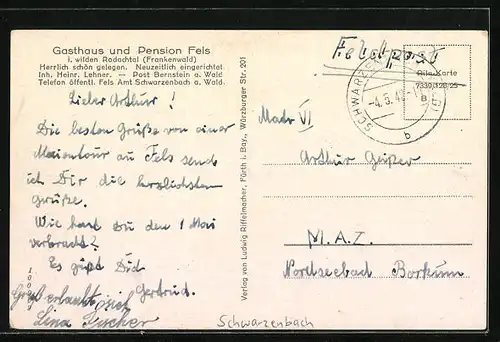 Gasthaus und Pension Fels
i. wilden Rodachtal (Frankenwald)
Herrlich schön gelegen. Neuzeitlich eingerichtet
Inh. Heinr. Lehner. — Post Bernstein a. Wald
Telefon öffentl. Fels Amt Schwarzenbach a. Wald.
Lieber Arthur!
Die besten Grüße von einer
Maientour au Fels send
ich Dir die herzlichsten
Grüße.
Wie hast du den 1 Mai
verbracht?
Es grüßt Dich
Gertrud.
Gruß erlaubt sich
Lina Fischer
Verlag von Ludwig Riffelmacher, Fürth i. Bay., Würzburger Str. 201
Feldpost
Rila-Karte
SCHWARZENB
-4.5.4
b
Arthur
M.A.Z.
Nordseebad Borkum
Schwarzenbach